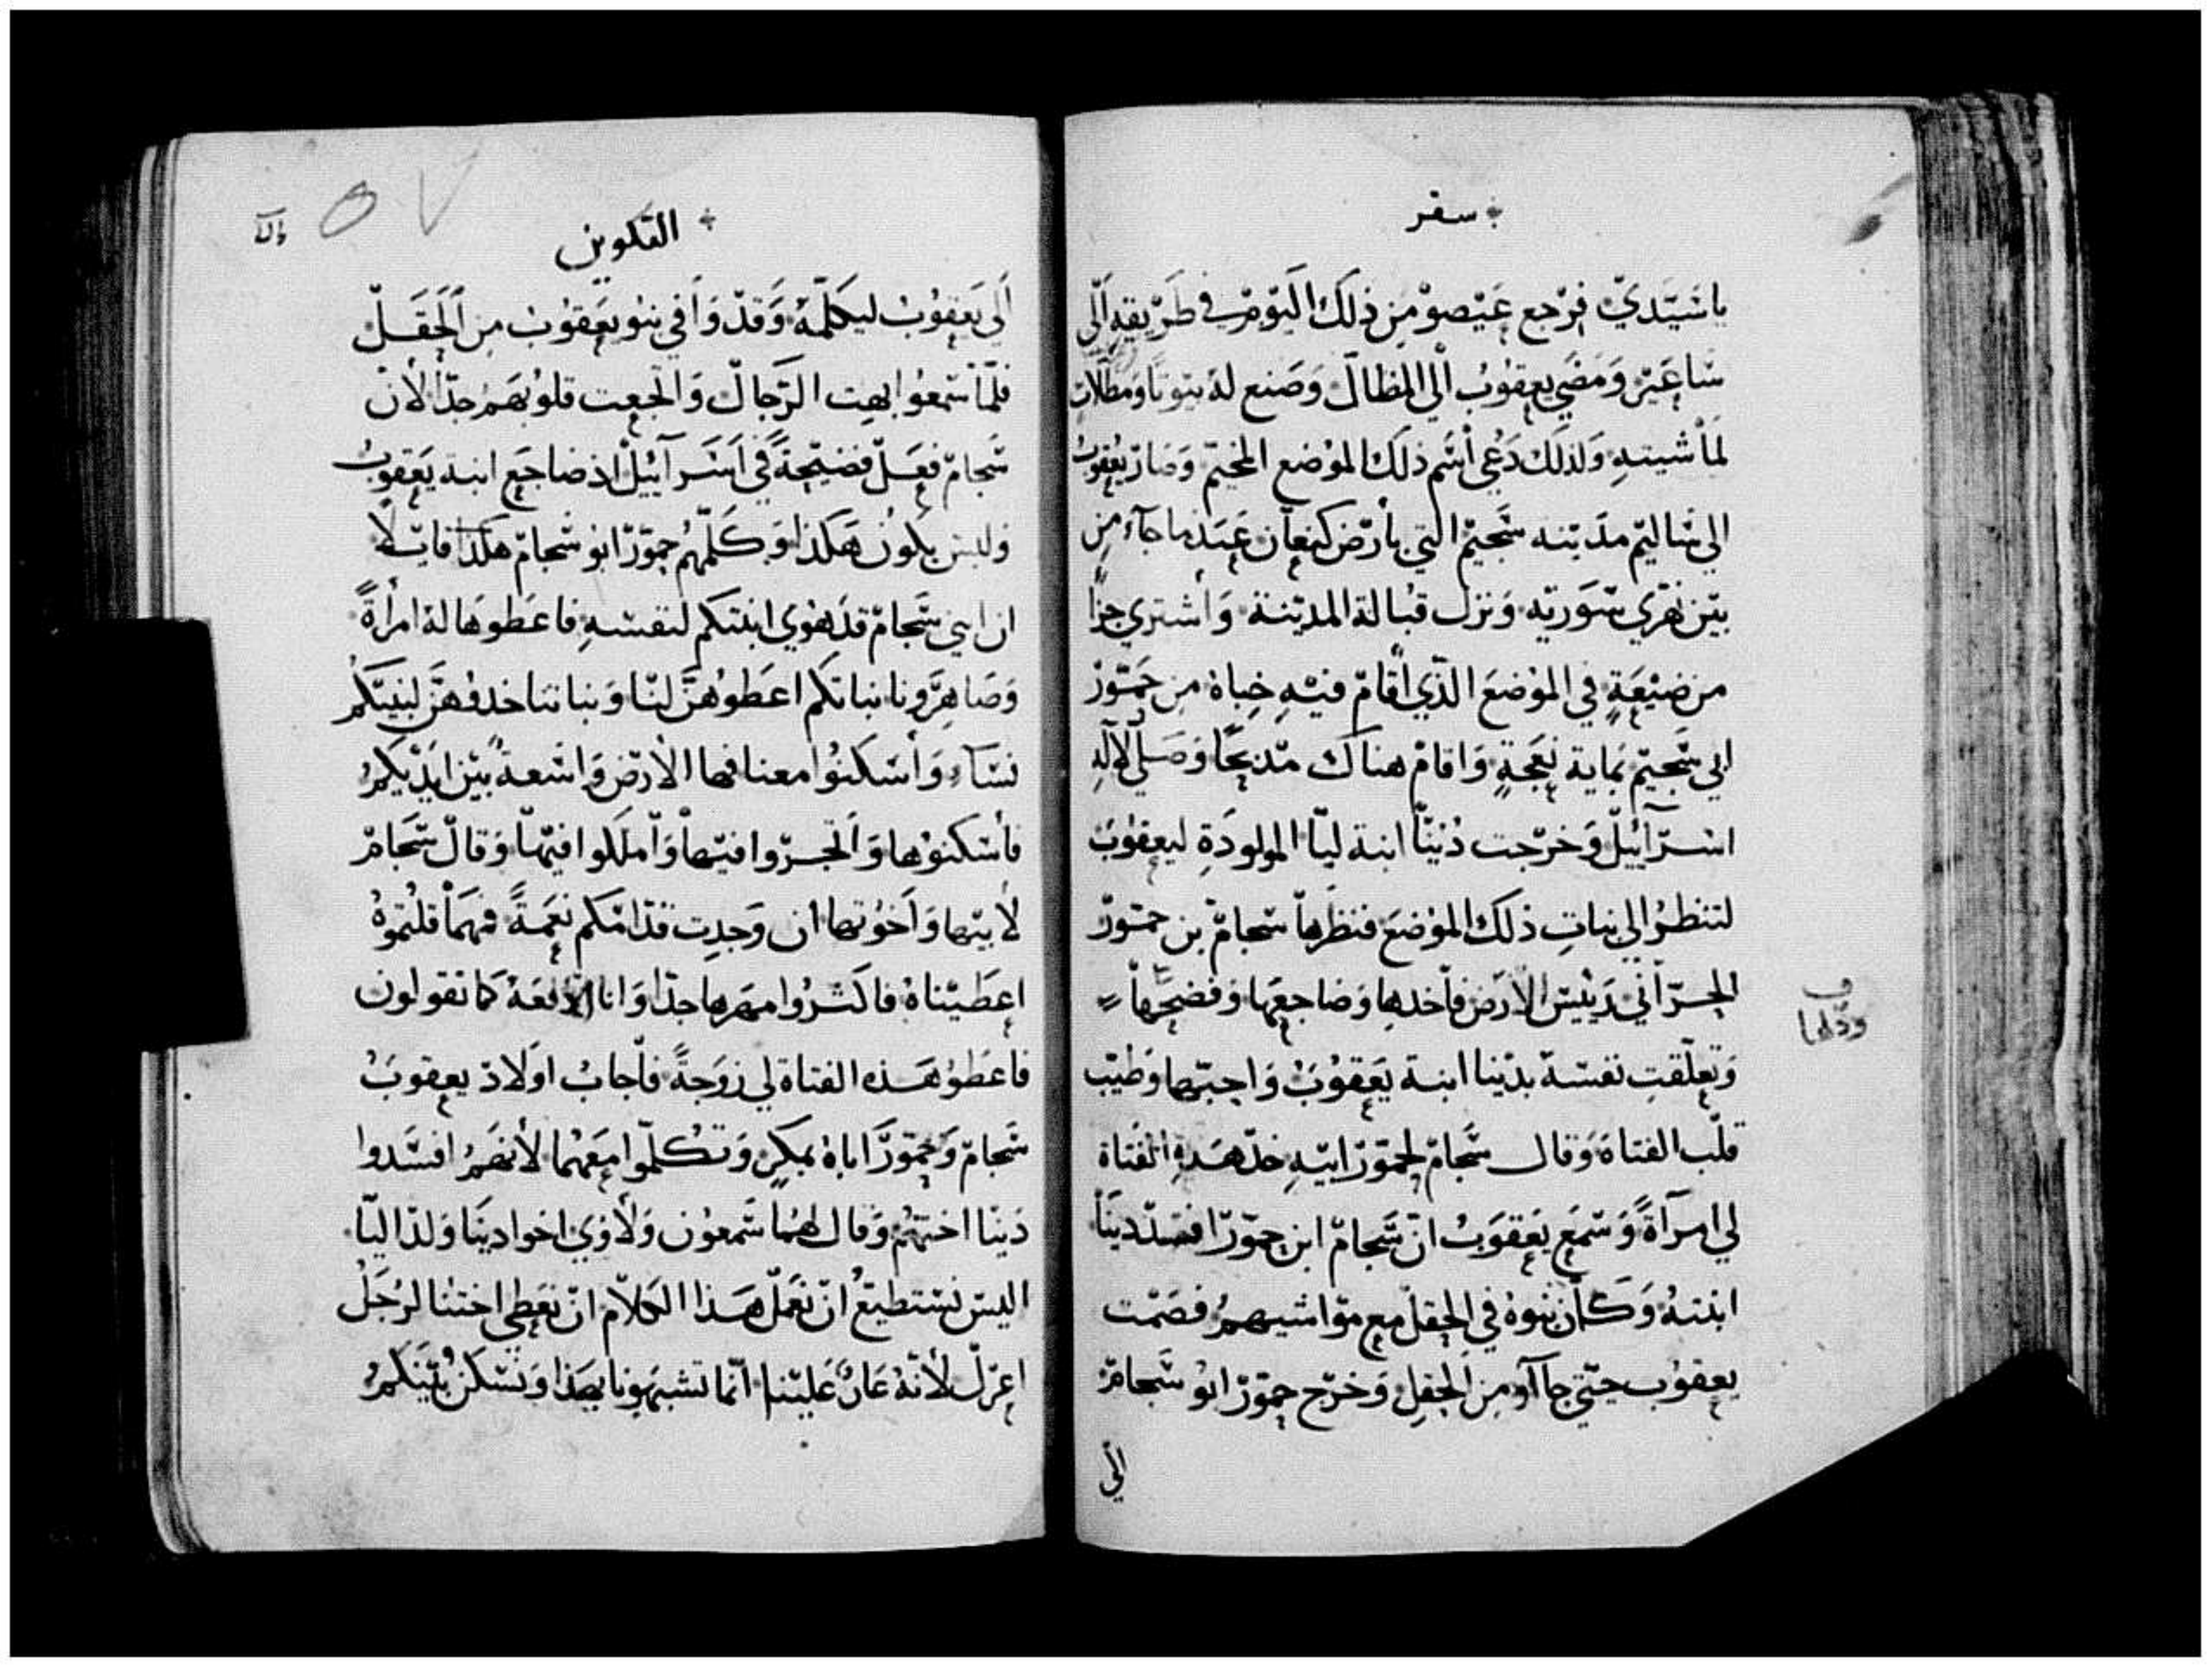 سفر
يا سَيّديّ فرجع عَيْصوْ من ذلك اليَوم في طَرِيقهِ اَلي
سَاعَير وَمَضَي يعقوُبُ الي المظالّ وَصَنع لهُ بيَوتًا وَمظلات
لمأشيتهِ وَلذلكَ دَعُي اسَم ذلك الموُضع المخيّم وَصَار يَعقوبُ
الي سَاليم مدَينه سَجيمْ التي بارَض كنعاَن عندما جآء من
بيَن نهَري سوَريَه وَنزل قبُالة المديَنة وَاشتري جزاً
من ضيْعَةٍ في الموُضعَ الذّي اقَامَ فيْهِ خِباهُ من حَموّرْ
ابي سَجيَمْ بماية نعجَةٍ وَاقامْ هناك مَدبحًا وَصَليّ لالَهِ
اسَرآئيلْ وَخرَجت دُنيَّا ابنة ليَّا المولودَةِ ليعقوُبَ
لتنظرُ الي بناتِ ذلك الموُضعَ فنظرَها سَجامّ بن حموَرّ
الحرّاني رَئيسَ الارَض فأخدها وَضاجعهَا وَفضحهَا
وَتعلّقتِ نفسَهُ بدَينا ابنة يعَقوُبَ وَاحبّهَا وَطيّب
قلّب الفتاة وَقال سَجامّ لحموّرْ ابيَهِ خدّ هَذهِ الفتاة
لي امرَآةً وَسَمعَ يعَقوَبُ انّ سَجامّ ابن حموَرّ افسَد ديَنا
ابنتهُ وَكاَن بنوهُ في الحقل مع موَاشيهمُ فصَمَت
يعقوُب حتيّ جاآو من الحقلِ وَخرَج حموّرْ ابوُ سَجامّ
الي
ودلها
التكوين
اَلي يعَقوُبُ ليكلمّهُ وَقدّ وَافي بنوُ يعَقوُبَ من اَلحَقلّ
فلمّا سَمعوُا بهت الرّجالّ وَاتجعت قلوُبهَمُ جدّا لأنْ
سَجامّ فعَلّ فضيَحةً في اسَرآئيل اذ ضاجَع ابنة يعَقوبُ
وَليسَ يكوُن هَكذا وَكلّمهمُ حموَرْ ابو سَجامّ هكذا قايَلاً
ان ابني سَجامّ قدَ هوُي ابنتكم لنفسَهِ فاعَطوهَا لهُ امرأةً
وَصَاهرَونا بناتكم اعَطوُهنّ لنَا وَبناتنا خدوُهنّ لبنيَكمُ
نسَآء وَاسَكنوُا معنا فها الارَض وَاسَعةٌ بيَن ايَدَيكمُ
فأسَكنوُها وَاتجرَوا فيَها وَاملكوا فيَها وَقالّ سَجامّ
لأبيَها وَاخوُتها ان وَجدت قدّامَكم نعمَةً فمهمَا قلتموُهُ
اعَطيَناهُ فاكثروُا مهرها جدًّا وَانا ادَفعَهُ كما تقولون
فاعَطوُ هَذه الفتاة لي زوَجةً فأجابُ اوَلادَ يعقوبَ
سَجامّ وَحموَرّ اباهُ بمكرٍ وَتكلّموا معَهما لأنهمُ افسَدوا
ديَنا اختهمُ وَقال لهما سَمعوُن وَلاوَيْ اخوا ديَنا وَلدا ليّا
اليسَ نسَتطيعُ انّ نعَملّ هَذا الكلامّ انّ نعَطي اختنا لرَجلُ
اعزلّ لأنهُ عَارٌ عَليَنا انّما تشبهَونا بهَذا وَنسَكنُ بيَنكمُ